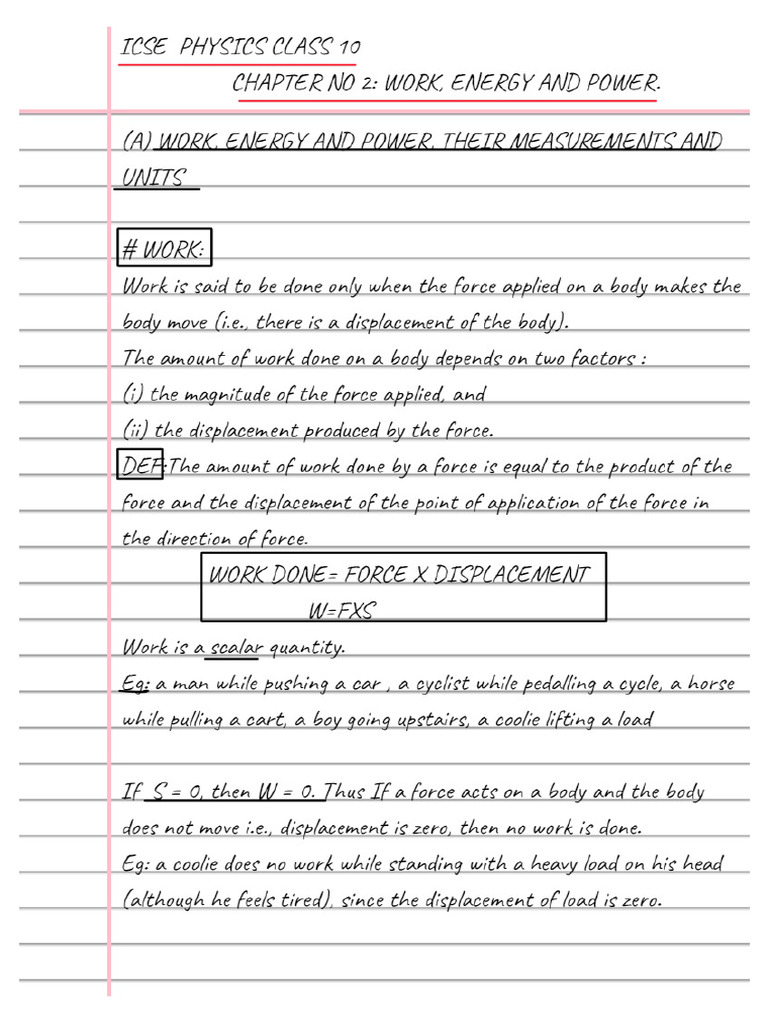 ICSE PHYSICS CLASS 10
CHAPTER NO 2: WORK, ENERGY AND POWER.
(A) WORK, ENERGY AND POWER, THEIR MEASUREMENTS AND
UNITS
# WORK:
Work is said to be done only when the force applied on a body makes the
body move (i.e., there is a displacement of the body).
The amount of work done on a body depends on two factors :
(i) the magnitude of the force applied, and
(ii) the displacement produced by the force.
DEF:The amount of work done by a force is equal to the product of the
force and the displacement of the point of application of the force in
the direction of force.
WORK DONE= FORCE X DISPLACEMENT
W=FXS
Work is a scalar quantity.
Eg: a man while pushing a car , a cyclist while pedalling a cycle, a horse
while pulling a cart, a boy going upstairs, a coolie lifting a load
If S = 0, then W = 0. Thus If a force acts on a body and the body
does not move i.e., displacement is zero, then no work is done.
Eg: a coolie does no work while standing with a heavy load on his head
(although he feels tired), since the displacement of load is zero.